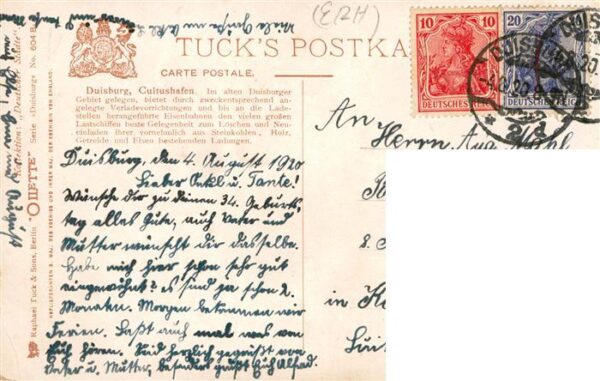 (ERH)
TUCK'S POSTKA
CARTE POSTALE.
Duisburg, Cuitushafen. Im alten Duisburger
Gebiet gelegen, bietet durch zweckentsprechend an-
gelegte Verladevorrichtungen und bis an die Lade-
stellen herangeführte Eisenbahnen den vielen großen
Lastschiffen beste Gelegenheit zum Löschen und Neu-
einladen ihrer vornehmlich aus Steinkohlen, Holz,
Getreide und Eisen bestehenden Ladungen.
Duisburg, den 4. August 1920
Lieber Onkel u. Tante!
Wünsche dir zu deinen 34. Geburts-
tag alles Gute, auch Vater und
Mutter wünscht dir dasselbe.
Habe mich hier schon sehr gut
eingewöhnt? Es sind ja schon 2.
Monaten. Morgen bekommen wir
Ferien. Laßt auch mal was von
Euch hören. Seid herzlich gegrüßt von
Vater u. Mutter, besonders grüßt Euch Alfred.
Viele Grüße
Raphael Tuck & Sons, Berlin "OILETTE" Serie »Duisburg« No. 604 B
10 10
DEUTSCHES REICH
20
DEUTSCHES REICH
DUISBURG
4.8.20
An
Herrn Aug.
8.
in